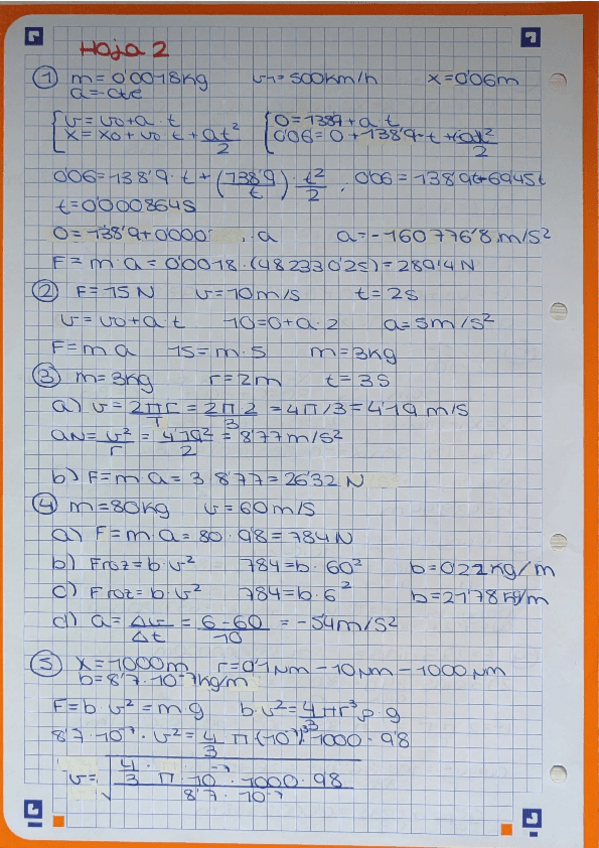 Hoja 2
① m=0'0018kg v1=500km/h x=0'06m
a=cte
{v=v0+a·t {0=138'9+a·t
x=x0+v0·t+at²/2 0'06=0+138'9·t+at²/2
0'06=138'9·t+(138'9/t)·t²/2, 0'06=138'9t+69'45t
t=0'000864s
0=138'9+0'000 ·a a=-160776'8 m/s²
F=m·a=0'0018·(482330'25)=289'4N
② F=15N v=10m/s t=2s
v=v0+a·t 10=0+a·2 a=5m/s²
F=m a 15=m·5 m=3kg
③ m=3kg r=2m t=3s
a) v=2πr/T=2π2/3=4π/3=4'19 m/s
aN=v²/r=4'19²/2=8'77m/s²
b) F=m a=3 8'77=26'32 N
④ m=80kg v=60m/s
a) F=m a=80·9'8=784N
b) Froz=b·v² 784=b·60² b=0'22kg/m
c) Froz=b·v² 784=b·6² b=21'78kg/m
d) a=Δv/Δt=6-60/10=-5'4m/s²
⑤ x=1000m r=0'1μm-10μm-1000μm
b=8'7·10⁻⁷kg/m
F=b v²=mg b·v²=4/3πr³ρ·g
8'7·10⁻⁷·v²=4/3 π(10⁻⁷)³·1000·9'8
v=√4/3·π·10⁻⁷·1000·98/8'7·10⁻⁷